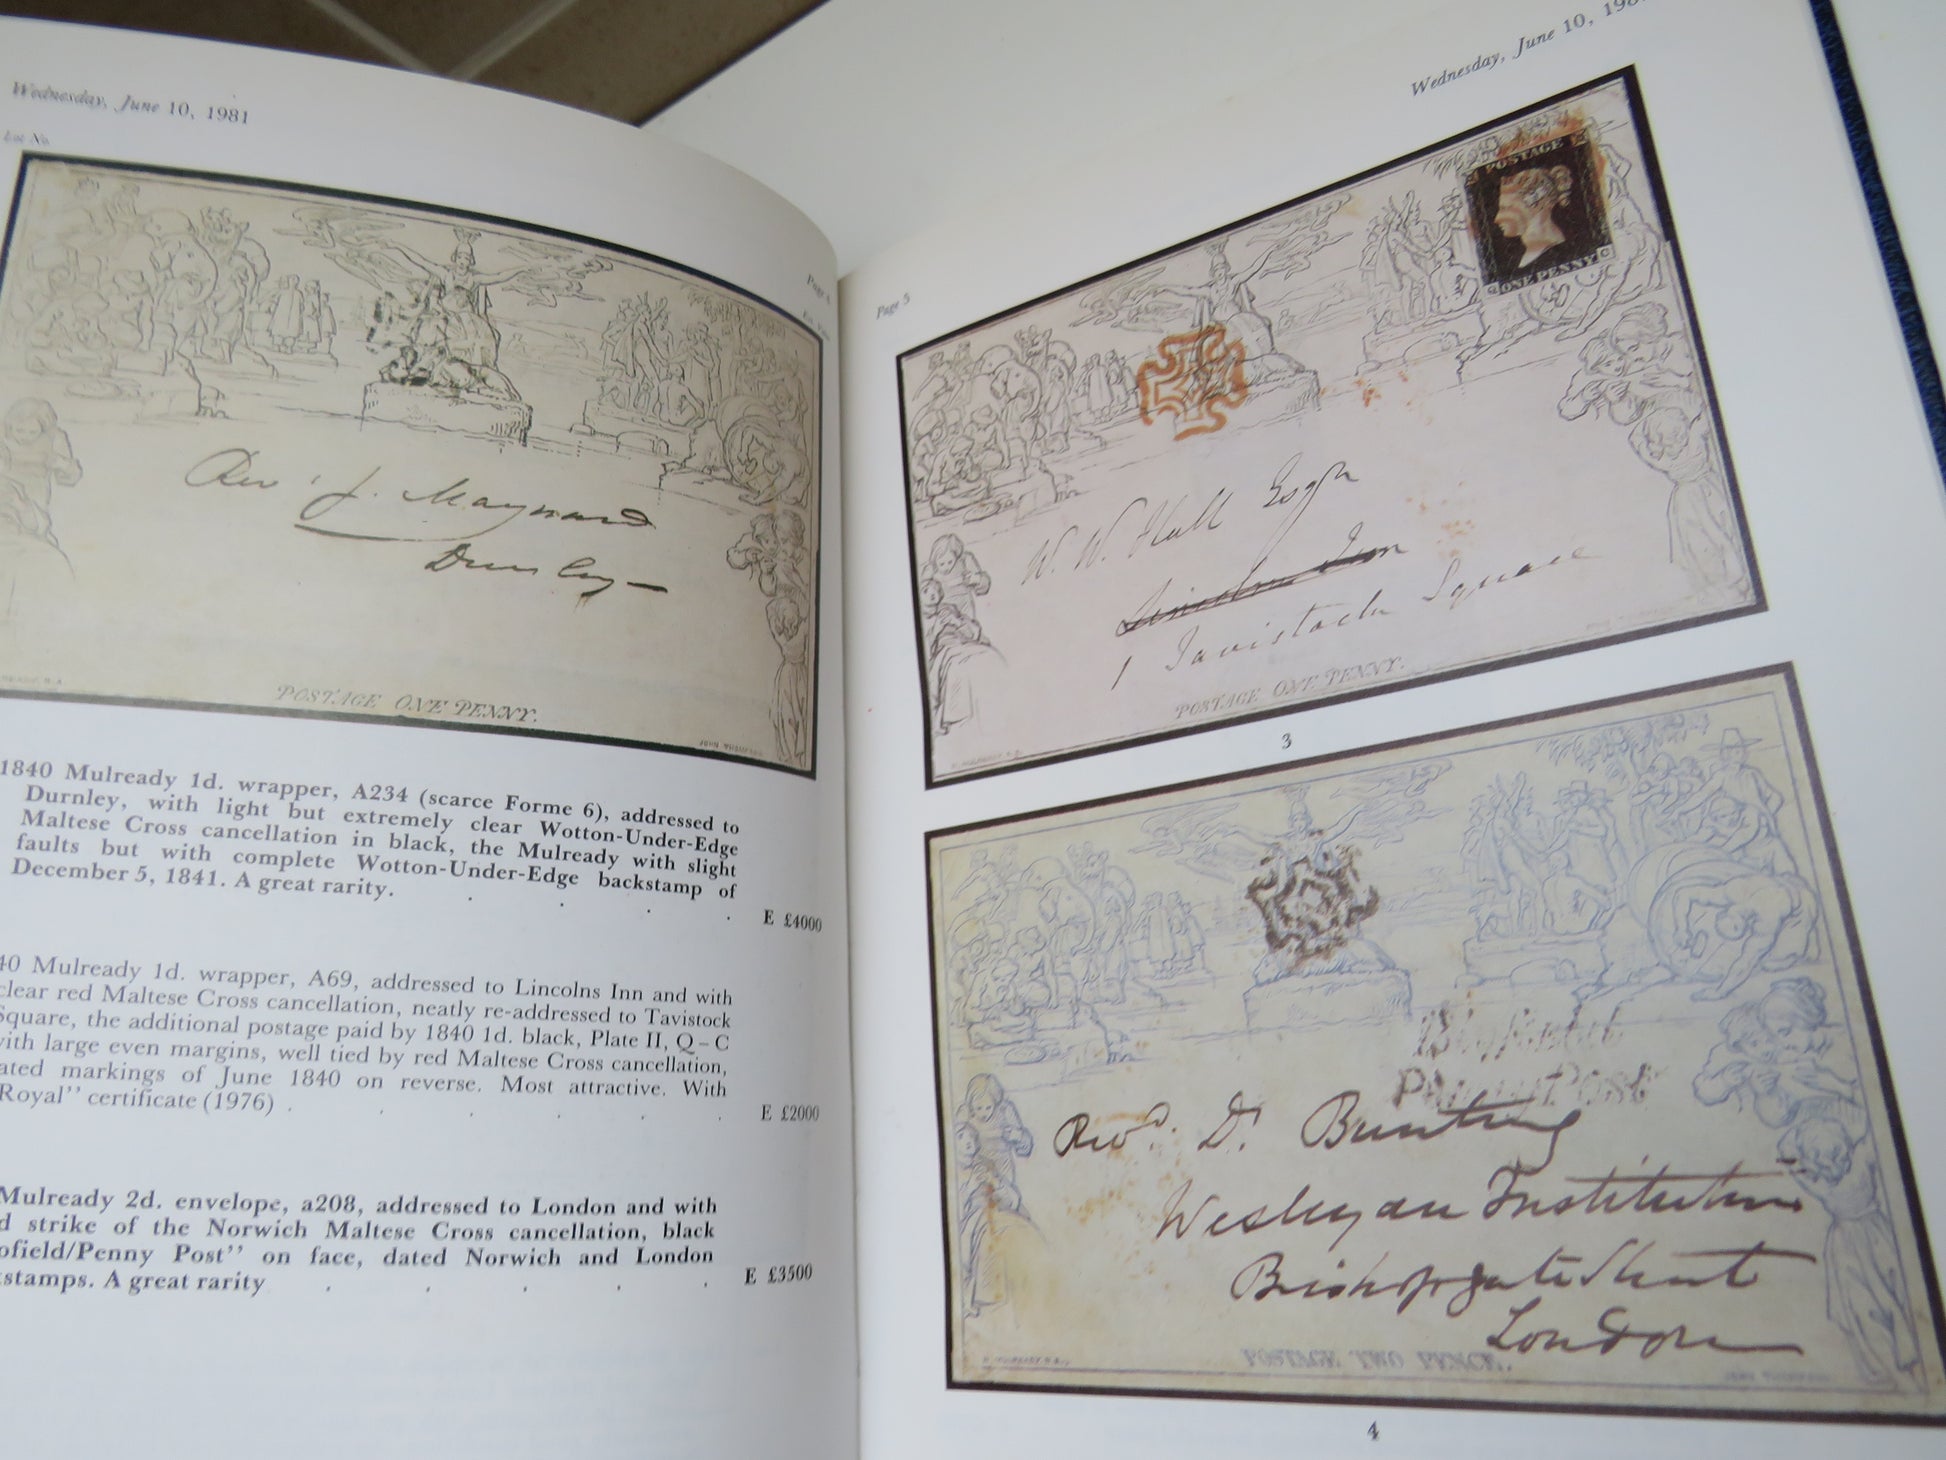 Wednesday, June 10, 1981
Lot No.
Page 4
Rev. J. Maynard
Dursley
POSTAGE ONE PENNY.
1840 Mulready 1d. wrapper, A234 (scarce Forme 6), addressed to
Durnley, with light but extremely clear Wotton-Under-Edge
Maltese Cross cancellation in black, the Mulready with slight
faults but with complete Wotton-Under-Edge backstamp of
December 5, 1841. A great rarity. . . . .
E £4000
40 Mulready 1d. wrapper, A69, addressed to Lincolns Inn and with
clear red Maltese Cross cancellation, neatly re-addressed to Tavistock
Square, the additional postage paid by 1840 1d. black, Plate II, Q – C
with large even margins, well tied by red Maltese Cross cancellation,
ated markings of June 1840 on reverse. Most attractive. With
Royal" certificate (1976) . . . . .
E £2000
Mulready 2d. envelope, a208, addressed to London and with
d strike of the Norwich Maltese Cross cancellation, black
ofield/Penny Post" on face, dated Norwich and London
stamps. A great rarity . . . . .
E £3500
Wednesday, June 10, 198
Page 5
POSTAGE
ONE PENNY
Q C
W. W. Hall Esqr
Lincolns Inn
1 Tavistock Square
POSTAGE ONE PENNY.
3
Penny Post
Revd. Dr Bunting
Wesleyan Institution
Bishopsgate Street
London
POSTAGE TWO PENCE.
4